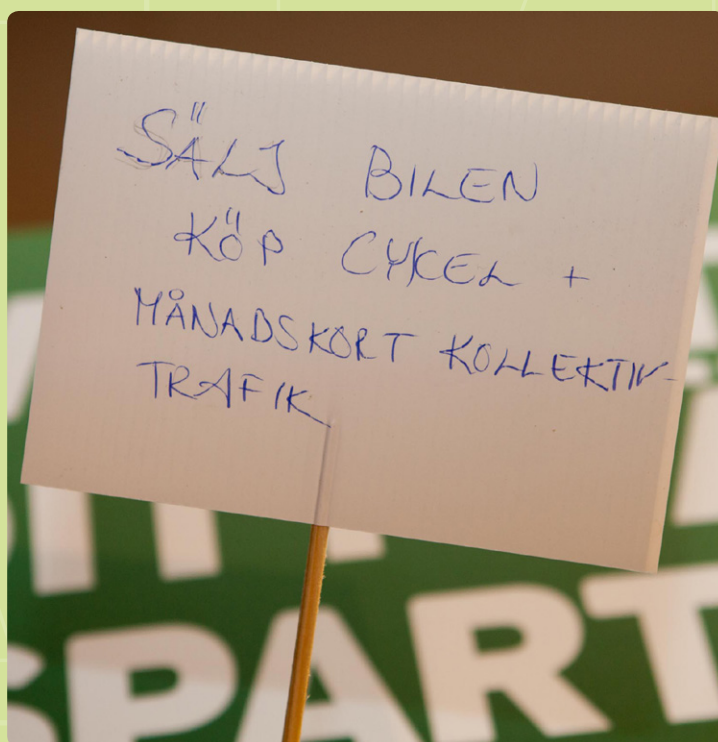 SÄLJ BILEN
KÖP CYKEL +
MÅNADSKORT KOLLEKTIV-
TRAFIK
SPART